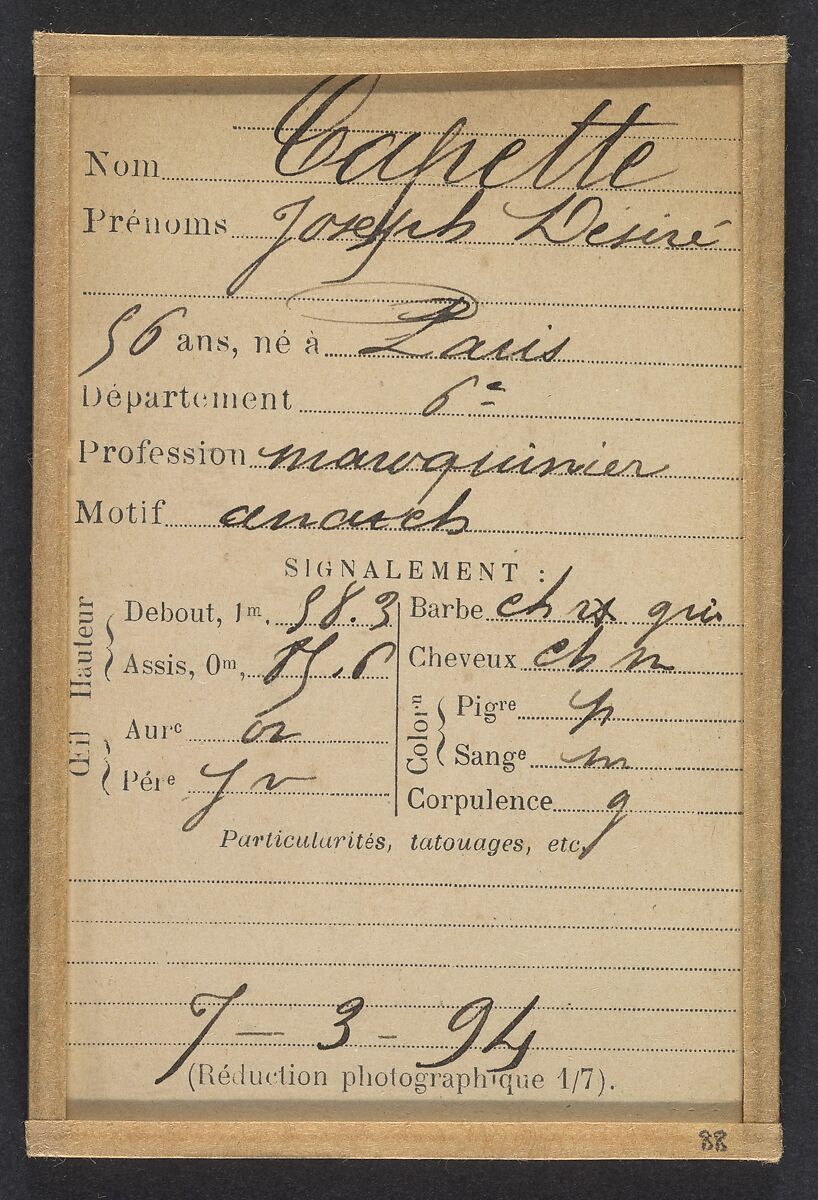 Nom Capette
Prénoms Joseph Désiré
56 ans, né à Paris
Département 6e
Profession maroquinier
Motif anarch
SIGNALEMENT :
Hauteur
Debout, 1m, 58.3
Assis, 0m, 85.6
Œil
Aurc or
Pére j v
Barbe ch gris
Cheveux ch m
Colorn
Pigre p
Sange m
Corpulence g
Particularités, tatouages, etc.
7 - 3 - 94
(Réduction photographique 1/7).
88